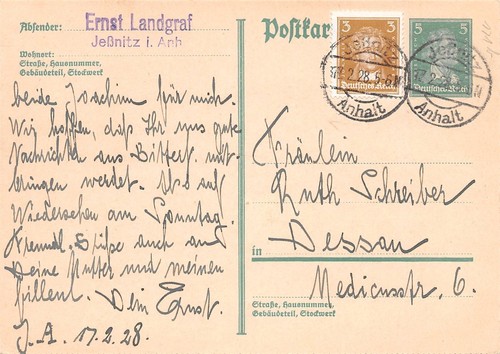 Absender: Ernst Landgraf
Jeßnitz i. Anh
Wohnort:
Straße, Hausnummer,
Gebäudeteil, Stockwerk
beide Joachim für mich.
Wir hoffen, daß Ihr uns gute
Nachrichten aus Bitterf. mit-
bringen werdet. Also auf
Wiedersehen am Sonntag.
Freundl. Grüße auch an
Deine Mutter und meinen
Dein Ernst.
J. A. 17. 2. 28.
Postkar
3 3
Deutsches Reich
5 5
Deutsches Reich
Jeßnitz
2.28.
Anhalt
Jeßnitz
Anhalt
Fräulein
Ruth Schreiber
in Dessau
Medicusstr. 6.
Straße, Hausnummer,
Gebäudeteil, Stockwerk